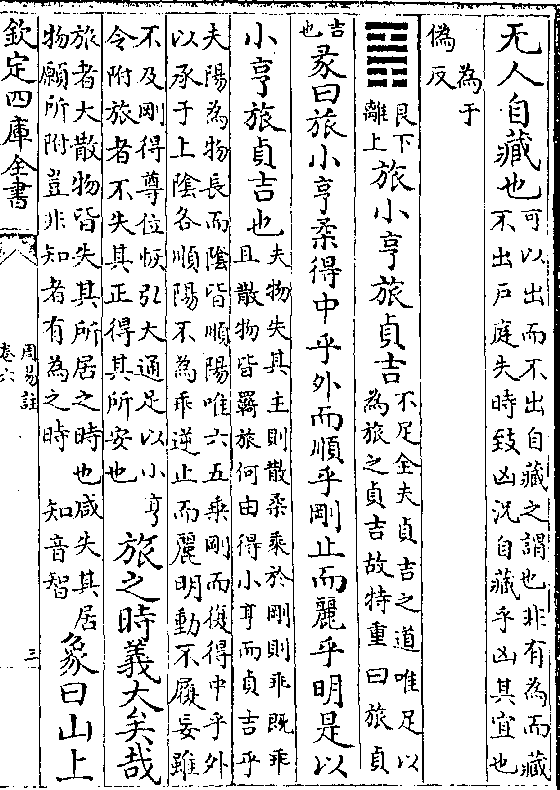 无人自藏也
可以出而不出自藏之謂也非有為而藏
不出戶庭失時致凶況自藏乎凶其宜也
為于
偽反
䷷
艮下
離上
旅小亨旅貞吉
不足全夫貞吉之道唯足以
為旅之貞吉故特重曰旅貞
吉
也
彖曰旅小亨柔得中乎外而順乎剛止而麗乎明是以
小亨旅貞吉也
夫物失其主則散柔乘於剛則乖既乖
且散物皆羇旅何由得小亨而貞吉乎
夫陽為物長而陰皆順陽唯六五乘剛而復得中乎外
以承于上陰各順陽不為乖逆止而麗明動不履妄雖
不及剛得尊位恢引大通足以小亨
令附旅者不失其正得其所安也
旅之時義大矣哉
旅者大散物皆失其所居之時也咸失其居
物願所附豈非知者有為之時 知音智
象曰山上
欽定四庫全書
周易註
卷六
三